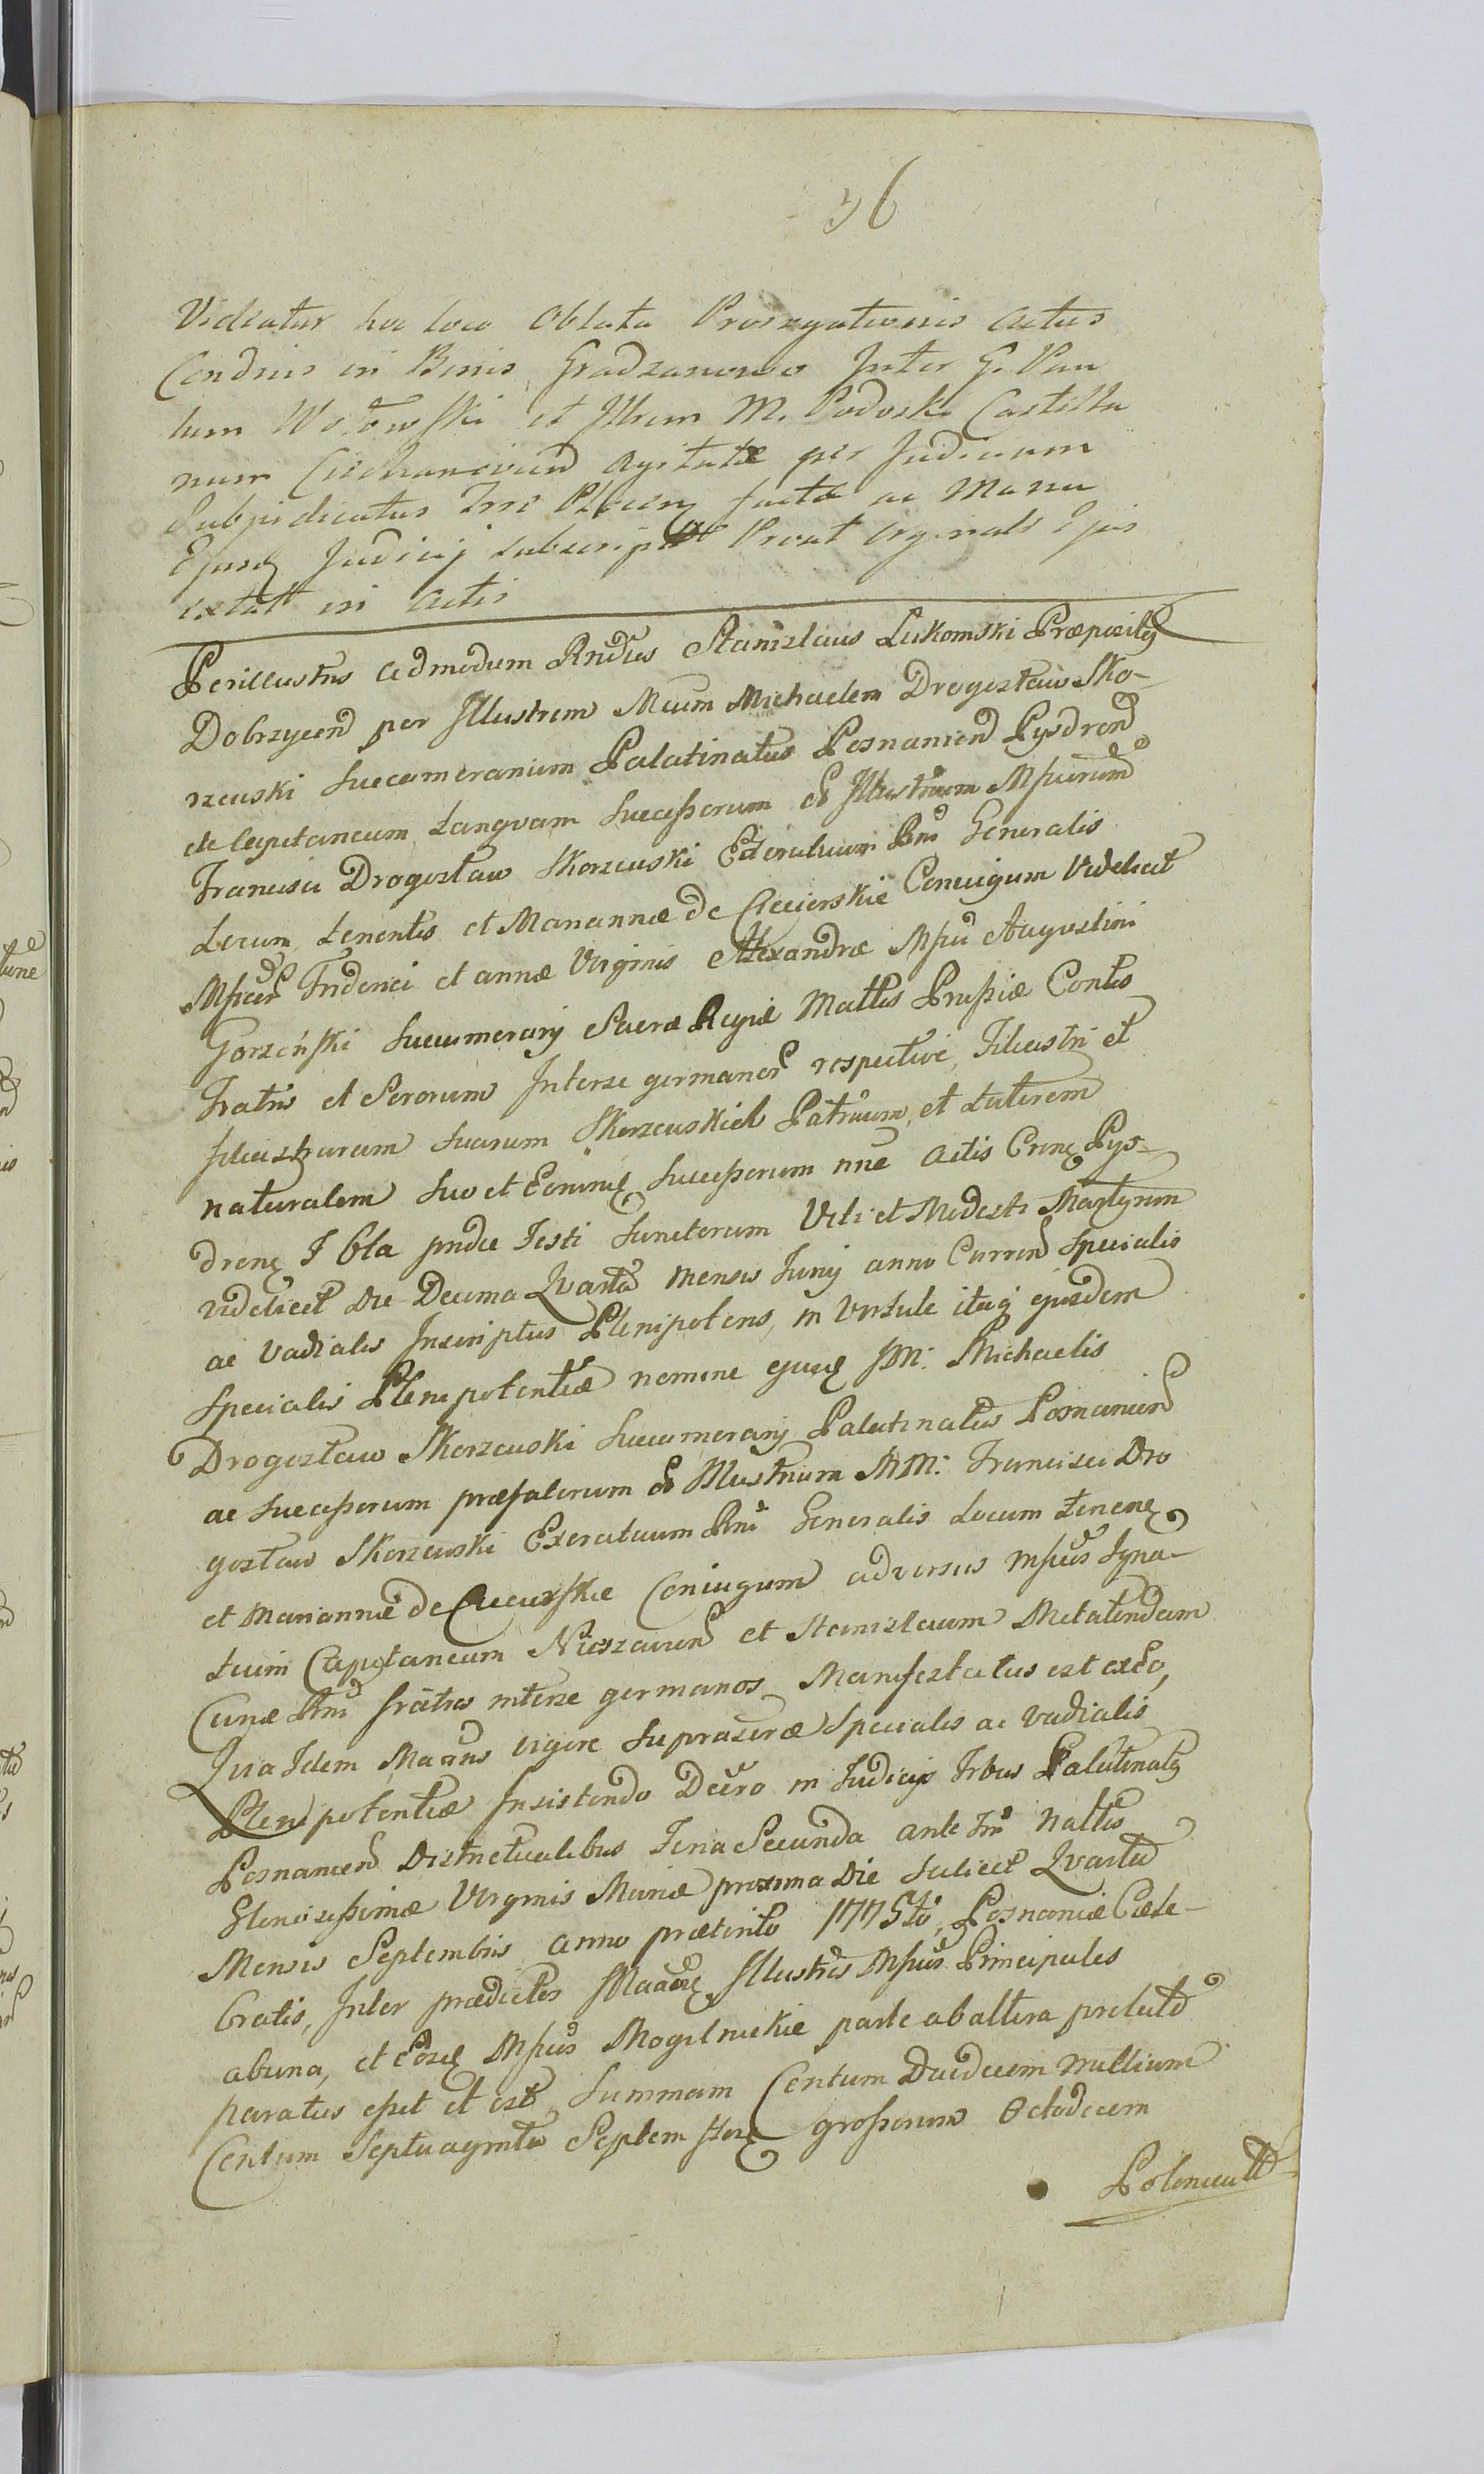 36
Videatur hoc loco Oblata Prorogationis actus
Condnis in Bonis Gradzanowo Inter G. Pau
lum Wołowski et Illrem M. Podoski Castella
num Ciechanovien agitatæ per Judicium
Subjudicatus Trre Plocen factæ ac Manu
Ejusq Judicij subscript Prout originale Ejus
extat in actis
Perillustris admodum Rndus Stanislaus Lukomski Præpositq
Dobrzycen per Illustrem Mcum Michaelem Drogosław Sko-
rzewski Succamerarium Palatinatus Posnanien Pysdren
de Capitaneum tanqvam Successorum olo Illustrium Mficorum
Francisci Drogosław Skorzewski Exercituum Rni Generalis
Locum tenentis et Mariannæ de Ciecierskie Conjugum videlicet
Mficor Friderici et annæ Virginis Alexandræ Mfici Augustini
Gorzeński Succamerarij Sacræ Regiæ Mattis Prussiæ Contis
Fratris et Sororum Interse germanor respective, Filiastri et
filiastrarum suarum Skorzewskich Patruum, et tutorem
naturalem suo et Eorumq Successorum nne actis Crensq Pys-
drensq F Cla pridie Festi Sanctorum Viti et Modesti Martyrum
videlicet die Decima Qvarta mensis Junij anno Curren Specialis
ac vadialis Inscriptus Plenipotens, in Virtute itaq ejusdem
Specialis Plenipotentiæ nomine ejusq IM: Michaelis
Drogosław Skorzewski Succamerarij Palatinatus Posnanien
ac Successorum præfatorum olo Illustrium MM: Francisci Dro
gosław Skorzewski Exercituum Rni Generalis Locum tenensq
et Mariannæ de Ciecierskie Conjugum adversus Mficos Igna-
tium Capitaneum Nieszavien et Stanislaum Metatorem
Curiæ Rni fratres interse germanos Manifestatus est ex eo,
Qvia Idem Mããns vigore suprascræ Specialis ac vadialis
Plenipotentiæ Insistendo Decro in Judicijs Trbus Palatinatq
Posnanien Districtualibus Feria Secunda ante Fm Nattis
Gloriosissimæ Virginis Mariæ proxima die scilicet Qvarta
Mensis Septembris anno præterito 1775to, Posnaniæ Cele-
bratis, Inter prædictos Mããnsq Illustres Mficos Principales
ab una, et Eosq Mficos Mogilnickie parte ab altera prolato
paratus esset et est, Summam Centum Duodecem millium
Centum Septuaginta Septem florq grossorum Octodecem
Polonicali